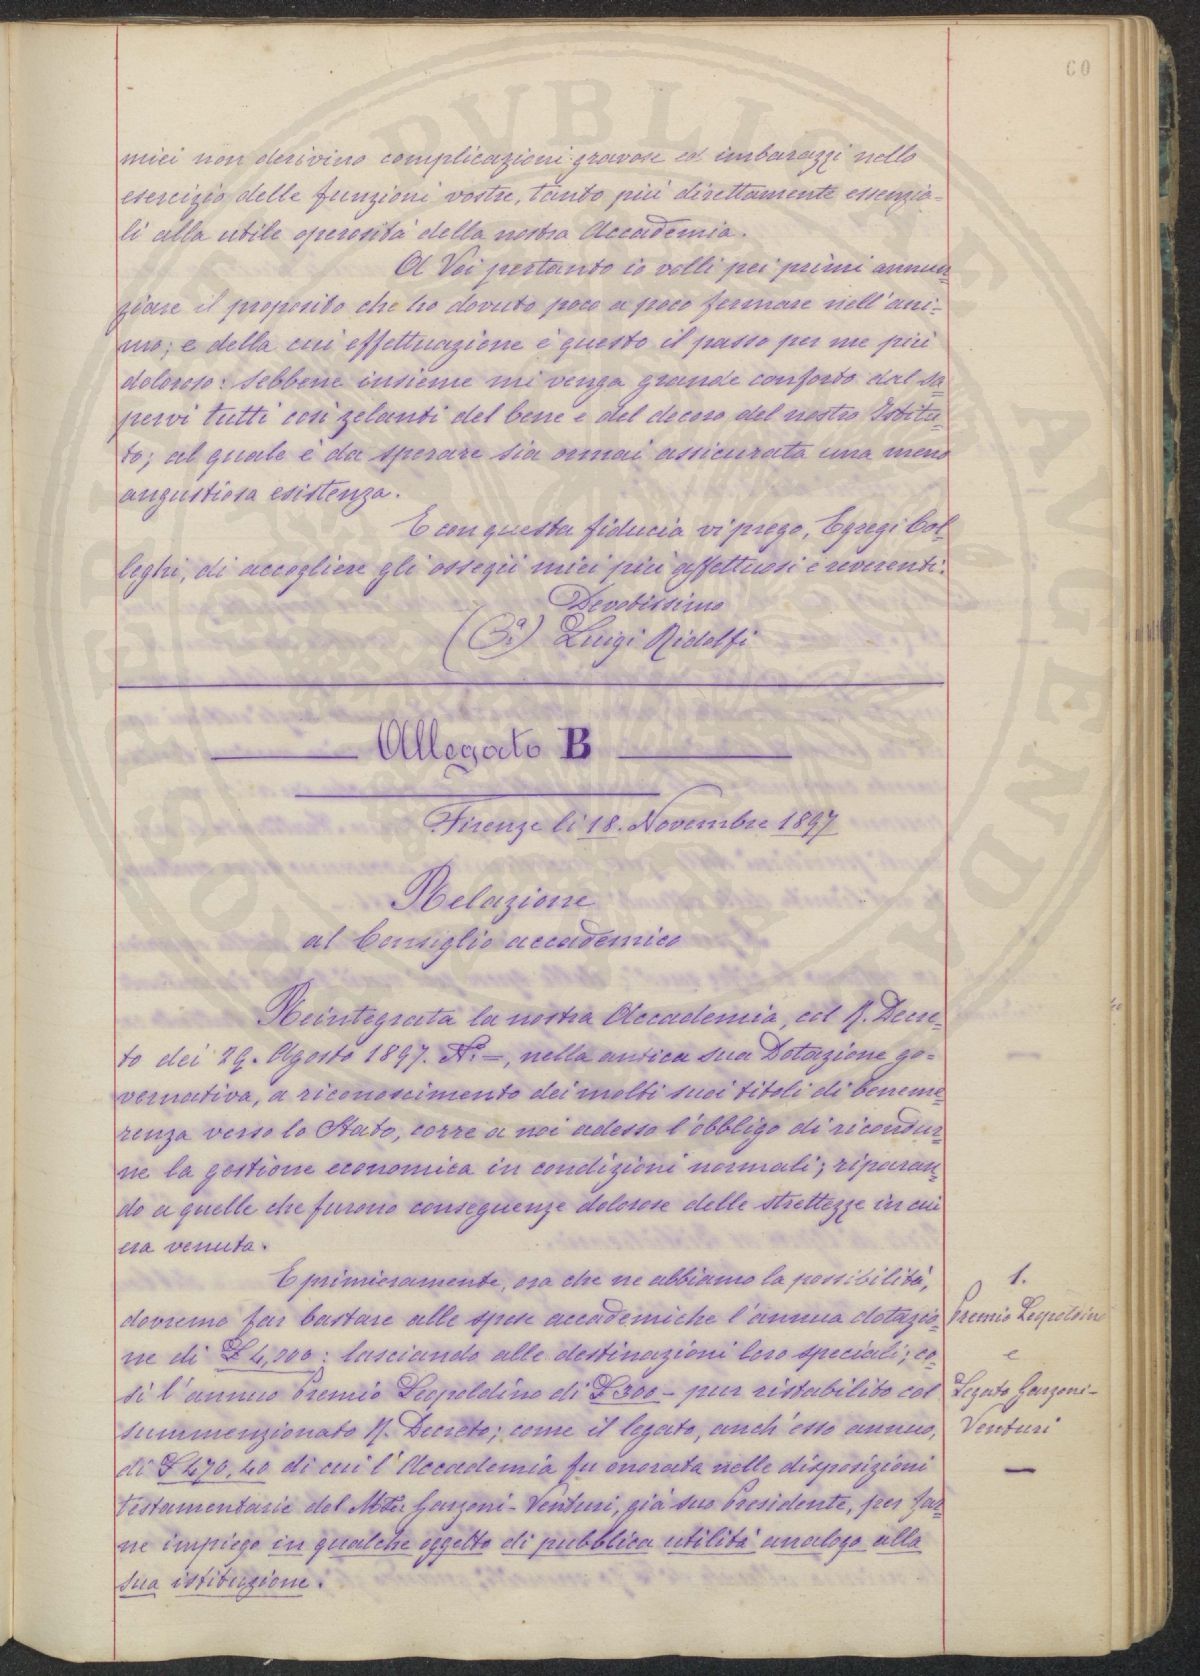 60
mici non derivino complicazioni gravose ed imbarazzi nello
esercizio delle funzioni vostre, tanto più direttamente essenzia=
li alla utile operosità della nostra Accademia.
A Voi pertanto io volli pei primi annun=
ziare il proposito che ho dovuto poco a poco fermare nell'ani=
mo; e della cui effettuazione è questo il passo per me più
doloroso: sebbene insieme mi venga grande conforto dal sa
pervi tutti così zelanti del bene e del decoro del nostro Istitu=
to; al quale è da sperare sia ormai assicurata una meno
angustiosa esistenza.
E con questa fiducia vi prego, Egregi Col=
leghi, di accogliere gli ossequi miei più affettuosi e reverenti.
Devotissimo
Luigi Ridolfi
Allegato B
Firenze li 18. Novembre 1897
Relazione
al Consiglio accademico
Reintegrata la nostra Accademia, col R. Decre=
to dei 29. Agosto 1897. N.° =, nella antica sua Dotazione go=
vernativa, a riconoscimento dei molti suoi titoli di beneme=
renza verso lo Stato, corre a noi adesso l'obbligo di ricondur=
ne la gestione economica in condizioni normali; riparan=
do a quelle che furono conseguenze dolorose delle strettezze in cui
era venuta.
E primieramente, ora che ne abbiamo la possibilità,
dovremo far bastare alle spese accademiche l'annua dotazio=
ne di £ 4,000: lasciando alle destinazioni loro speciali; co=
sì l'annuo Premio Leopoldino di £ 300 - pur ristabilito col
summenzionato R. Decreto; come il legato, anch'esso annuo,
di £ 470,40 di cui l'Accademia fu onorata nelle disposizioni
testamentarie del M.se Garzoni-Venturi, già suo Presidente, per far=
ne impiego in qualche oggetto di pubblica utilità analogo alla
sua istituzione.
1.
Premio Leopoldino
e
Legato Garzoni-
Venturi